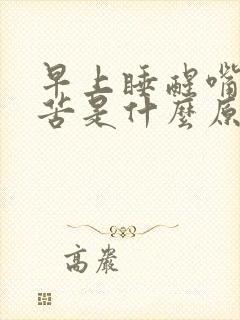 早上睡醒嘴
苦是什麼原
高嚴